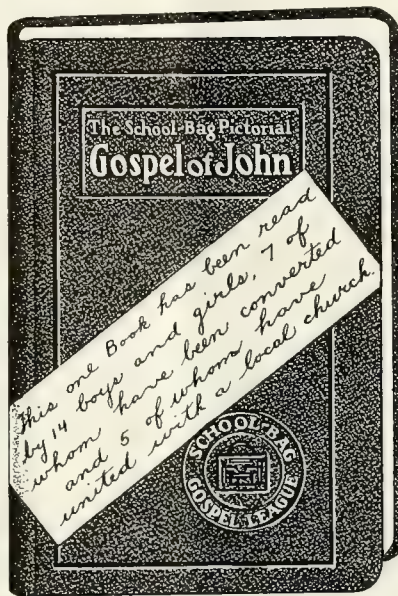 The School-Bag Pictorial
Gospel of John
This one Book has been read
by 14 boys and girls, 7 of
whom have been converted
and 5 of whom have
united with a local church.
SCHOOL-BAG
GOSPEL LEAGUE